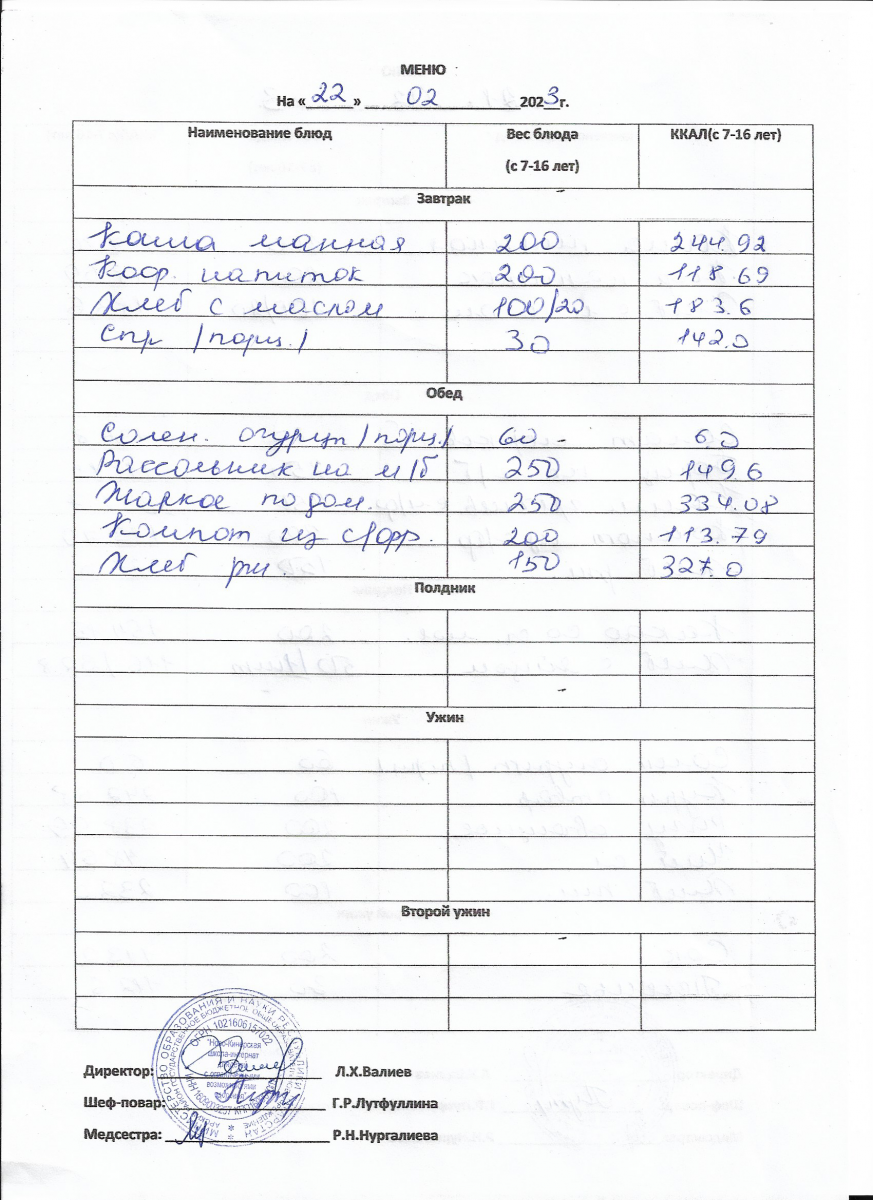 МЕНЮ
На « 22 » 02 2023г.
Наименование блюд Вес блюда (с 7-16 лет) ККАЛ(с 7-16 лет)
Завтрак
Каша манная 200 244.92
Коф. напиток 200 118.69
Хлеб с маслом 100/20 183.6
Спр /порц./ 30 142.0
Обед
Солен. огурцы /порц./ 60 - 6,0
Рассольник на м/б 250 149.6
Жаркое по дом. 250 334.08
Компот из с/фр. 200 113.79
Хлеб рж 150 327.0
Полдник
Ужин
Второй ужин
ОГРН 1021606157022
"Ново-Кинерская
школа-интернат
Директор: Л.Х.Валиев
Шеф-повар: Г.Р.Лутфуллина
Медсестра: Р.Н.Нургалиева